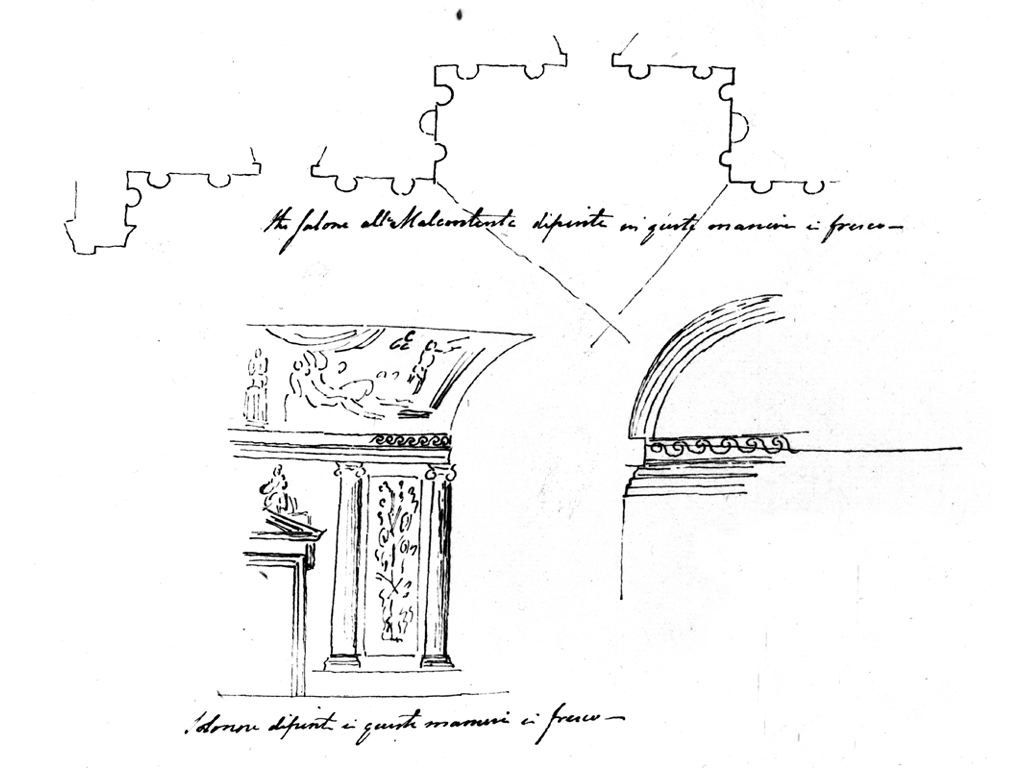 The Salone alla Malcontenta dipinte in questa maniera in fresco —
Salone dipinte in questa maniera in fresco —